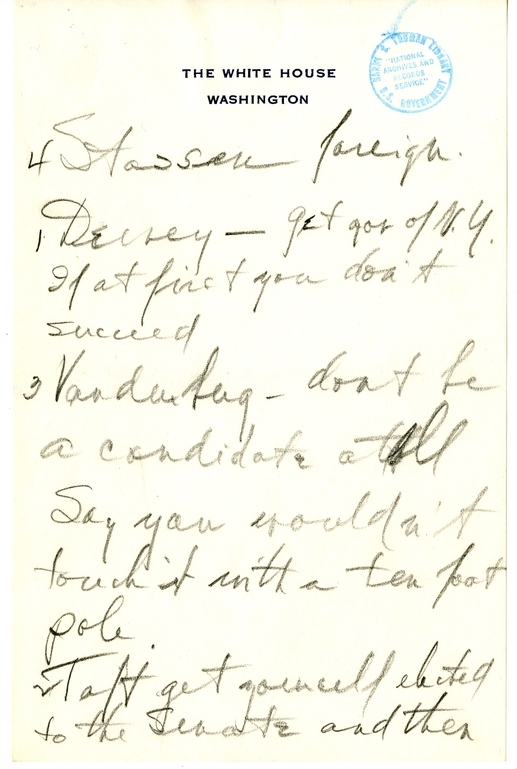 THE WHITE HOUSE
WASHINGTON
HARRY S. TRUMAN LIBRARY
"NATIONAL
ARCHIVES AND
RECORDS
SERVICE"
U.S. GOVERNMENT
4 Stassen foreign.
1 Dewey — get gov of N.Y.
If at first you don't
succeed
3 Vandenberg - dont be
a candidate at all
Say you wouldn't
touch it with a ten foot
pole.
2 Taft get yourself elected
to the Senate and then